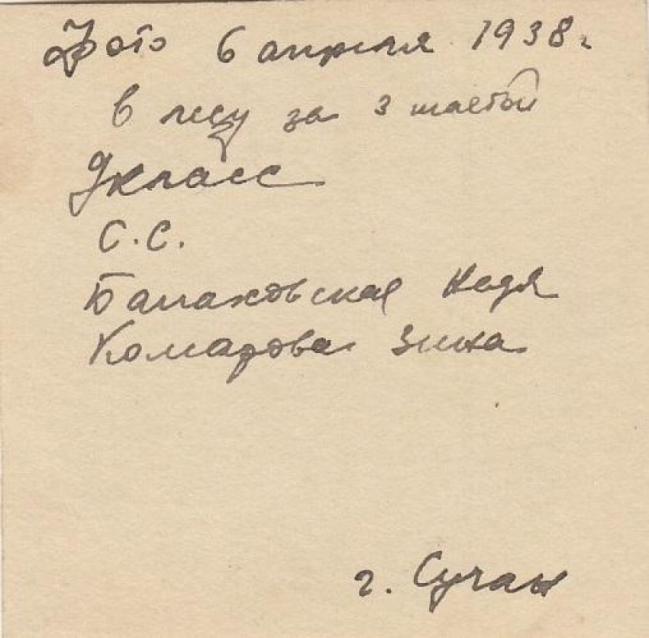 Фото 6 апреля 1938 г.
в лесу за 3 шахтой
9 класс
С.С.
Балаховская Надя
Комарова Зина
г. Сучан